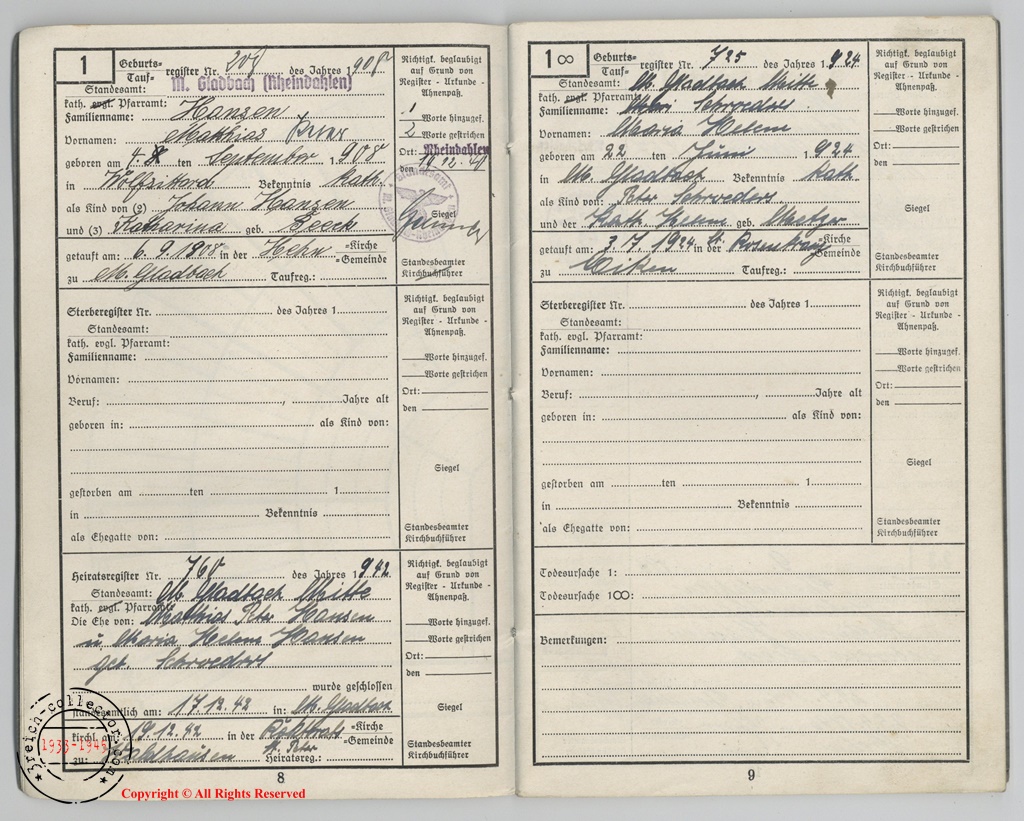 1
Geburts-
Tauf- register Nr. 209 des Jahres 1908
Standesamt: M. Gladbach (Rheindahlen)
kath. evgl. Pfarramt:
Familienname: Hanzen
Vornamen: Mathias Peter
geboren am 4. ten September 1908
in Bekenntnis kath.
als Kind von (2) Johann Hanzen
und (3) Katharina geb.
getauft am: 6.9.1908 in der Hehn -Kirche -Gemeinde
zu M. Gladbach Taufreg.:
Richtigk. beglaubigt
auf Grund von
Register - Urkunde -
Ahnenpaß.
1 Worte hinzugef.
2 Worte gestrichen
Ort: Rheindahlen
den 19.12.40
Siegel
Standesbeamter
Kirchbuchführer
Sterberegister Nr. des Jahres 1
Standesamt:
kath. evgl. Pfarramt:
Familienname:
Vornamen:
Beruf: , Jahre alt
geboren in: als Kind von:
gestorben am ten 1
in Bekenntnis
als Ehegatte von:
Richtigk. beglaubigt
auf Grund von
Register - Urkunde -
Ahnenpaß.
Worte hinzugef.
Worte gestrichen
Ort:
den
Siegel
Standesbeamter
Kirchbuchführer
Heiratsregister Nr. 760 des Jahres 1942
Standesamt: M. Gladbach Mitte
kath. evgl. Pfarramt:
Die Ehe von: Matthias Peter Hansen
u. Maria Helene Hansen
geb. Schroeders
wurde geschlossen
standesamtlich am: 17.12.42 in: M. Gladbach
kirchl. am: 19.12.42 in der St. Peter -Kirche -Gemeinde
zu: Heiratsreg.:
Richtigk. beglaubigt
auf Grund von
Register - Urkunde -
Ahnenpaß.
Worte hinzugef.
Worte gestrichen
Ort:
den
Siegel
Standesbeamter
Kirchbuchführer
8
3reich-collector.com
1933-1945
Copyright © All Rights Reserved
1∞
Geburts-
Tauf- register Nr. 725 des Jahres 1924
Standesamt: M. Gladbach Mitte
kath. evgl. Pfarramt:
Familienname: Schroeders
Vornamen: Maria Helene
geboren am 22 ten Juni 1924
in M. Gladbach Bekenntnis kath.
als Kind von: Peter Schroeders
und der Kath. Helene geb. Metzger
getauft am: 3.7.1924 in der St. Rosenkranz -Kirche -Gemeinde
zu Eiken Taufreg.:
Richtigk. beglaubigt
auf Grund von
Register - Urkunde -
Ahnenpaß.
Worte hinzugef.
Worte gestrichen
Ort:
den
Siegel
Standesbeamter
Kirchbuchführer
Sterberegister Nr. des Jahres 1
Standesamt:
kath. evgl. Pfarramt:
Familienname:
Vornamen:
Beruf: , Jahre alt
geboren in: als Kind von:
gestorben am ten 1
in Bekenntnis
als Ehegatte von:
Richtigk. beglaubigt
auf Grund von
Register - Urkunde -
Ahnenpaß.
Worte hinzugef.
Worte gestrichen
Ort:
den
Siegel
Standesbeamter
Kirchbuchführer
Todesursache 1:
Todesursache 1∞:
Bemerkungen:
9